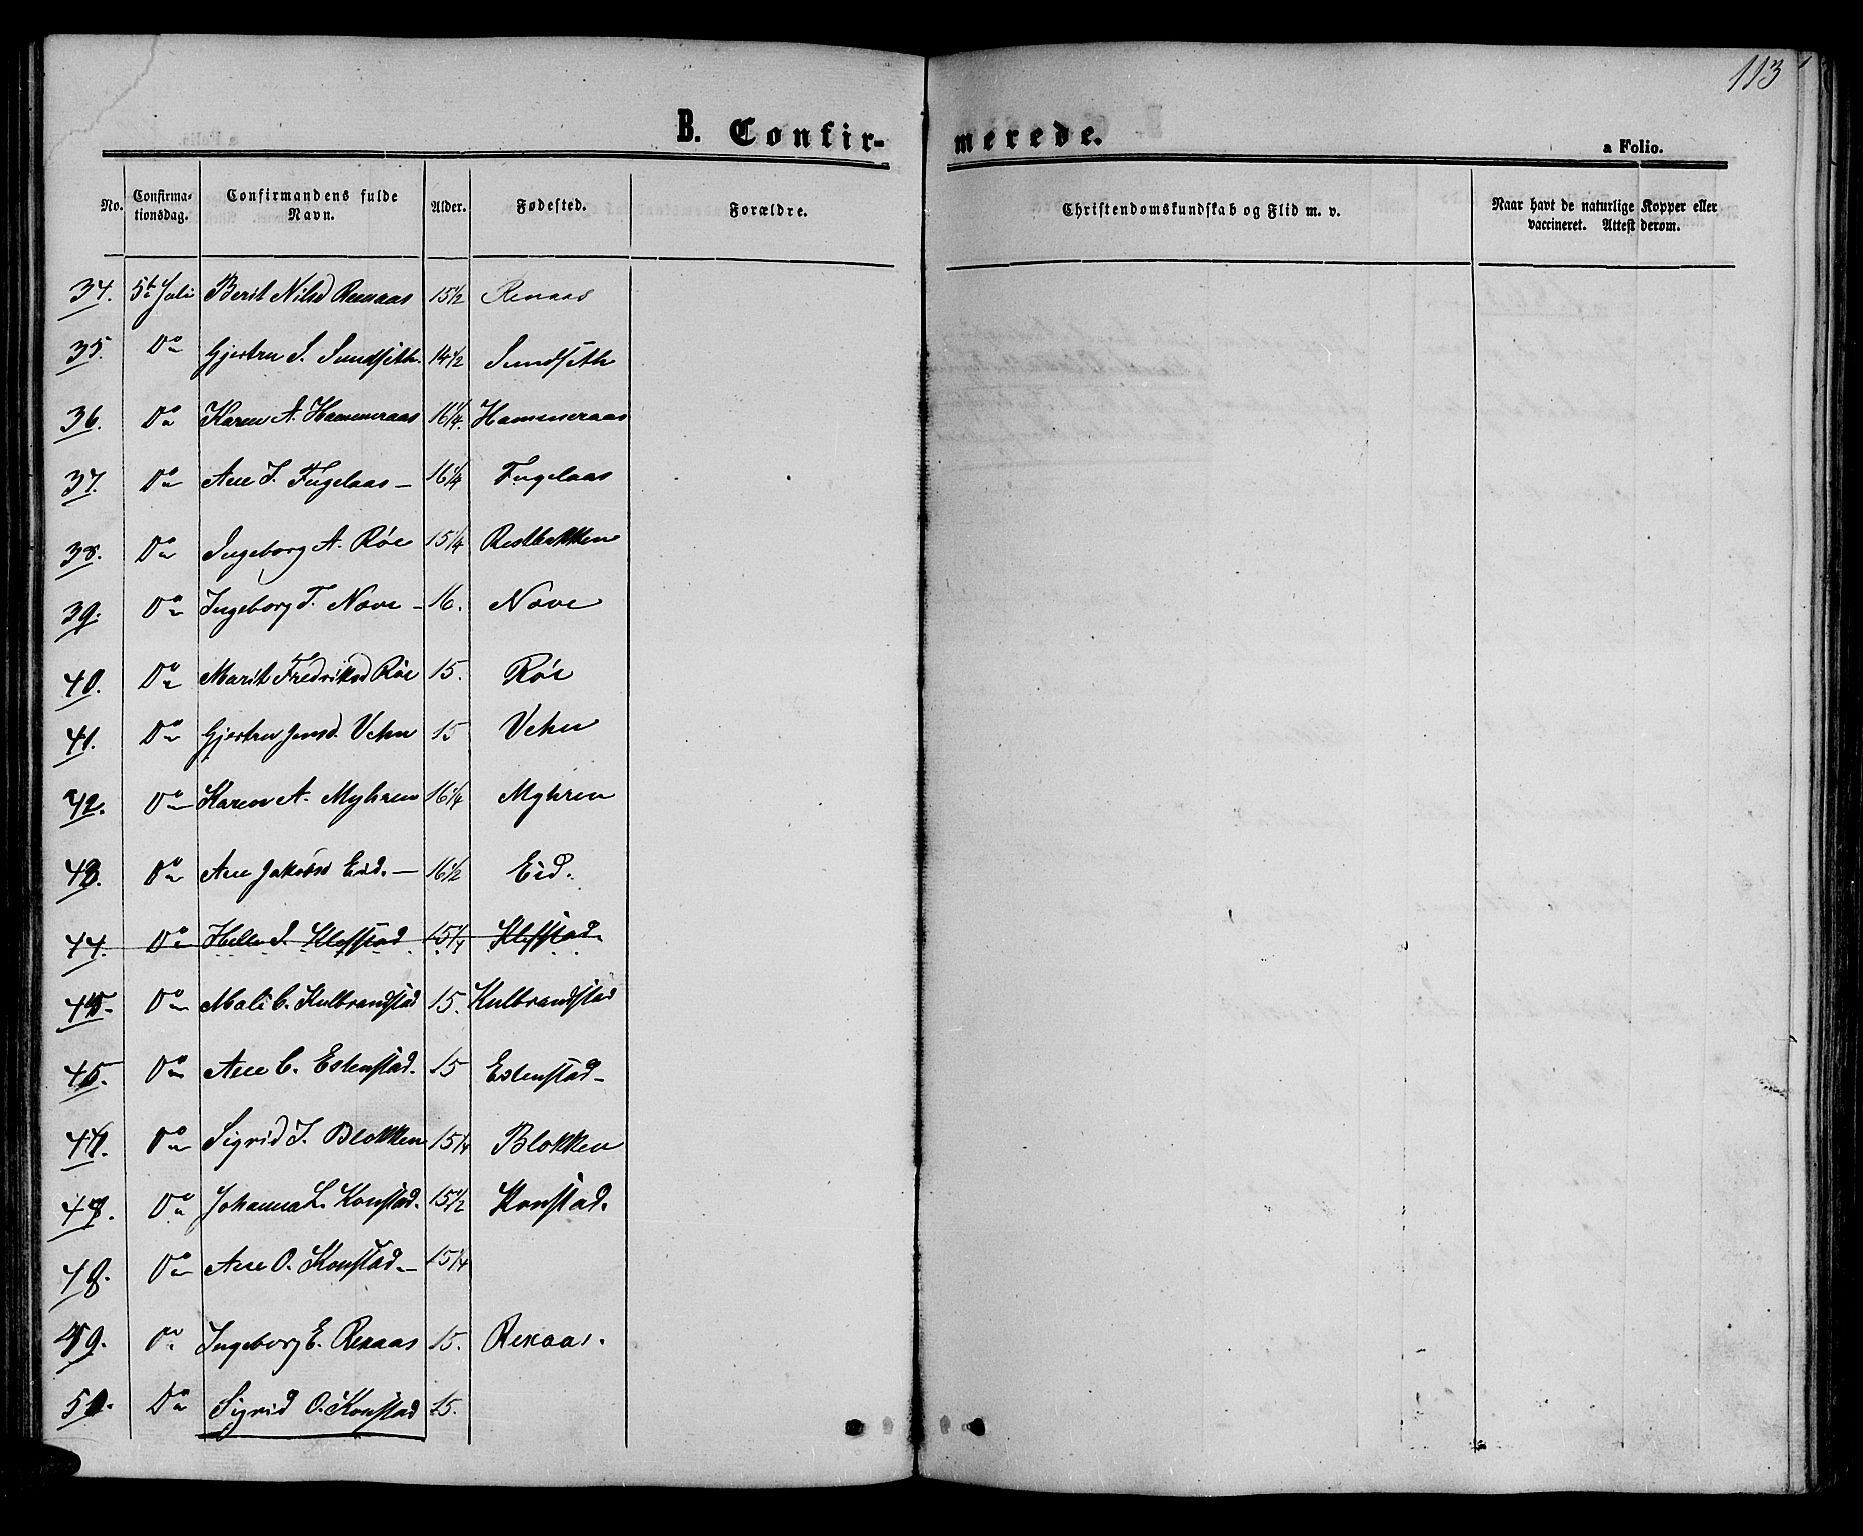 113
B. Confir-
merede.
a Folio.
No. Confirma-tionsdag. Confirmandens fulde Navn. Alder. Fødested. Forældre. Christendomskundskab og Flid m. v. Naar havt de naturlige Kopper eller vaccineret. Attest derom.
34. 5te Juli Berit Nilsd Renaas 15 1/2 Renaas
35. Do Gjertru S. Sundseth. 14 1/2 Sundseth
36. Do Karen A. Hammeraas 16 1/4. Hammeraas
37. Do Ane J. Fuglaas – 16 1/4 Fuglaas
38. Do Ingeborg A. Røe 15 1/4
39. Do Ingeborg T. Nove – 16. Nove
40. Do Marit Fredriksd Røe 15. Røe
41. Do Gjertru Jensd. Vehn 15 Vehn
42. Do Karen A. Myhren 16 1/4 Myhren
43. Do Ane Jakobsd Eid. – 16 1/2 Eid.
44. Do S. Klefstad 15 1/4 Klefstad.
45. Do Mali C. Kulbrandstad 15. Kulbrandstad
Do Ane C. Estenstad. 15 Estenstad –
Do Sigrid J. Blokken 15 1/4 Blokken
Do Johanna L. Konstad. 15 1/2 Konstad.
48. Do Ane O. Konstad. – 15 1/4
Do Ingeborg E. Renaas 15. Renaas.
Do Sigrid O. Konstad 15.